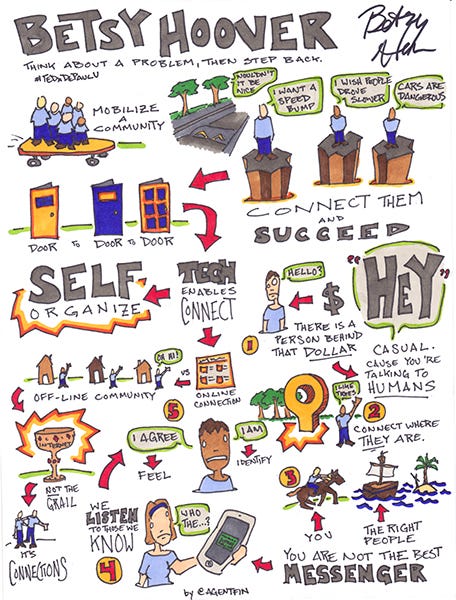 BETSY HOOVER
THINK ABOUT A PROBLEM, THEN STEP BACK.
#TEDXDEPAULU
MOBILIZE
A
COMMUNITY
WOULDN'T
IT BE
NICE
I WANT A
SPEED
BUMP
I WISH PEOPLE
DROVE
SLOWER
CARS ARE
DANGEROUS
CONNECT THEM
AND
SUCCEED
DOOR TO DOOR TO DOOR
SELF
ORGANIZE
TECH
ENABLES
CONNECT
HELLO?
$
1
THERE IS A
PERSON BEHIND
THAT DOLLAR
"HEY"
CASUAL.
CAUSE YOU'RE
TALKING TO
HUMANS
OH HI!
OFF-LINE COMMUNITY
VS
ONLINE
CONNECTION
5
I LIKE
TREES
2
CONNECT WHERE
THEY ARE.
INTERNET
NOT THE
GRAIL
IT'S
CONNECTIONS
I AGREE
FEEL
I AM
IDENTIFY
3
YOU
THE RIGHT
PEOPLE
WE
LISTEN
TO THOSE WE
KNOW
4
WHO
THE...?
YOU ARE NOT THE BEST
MESSENGER
by @AGENTFIN